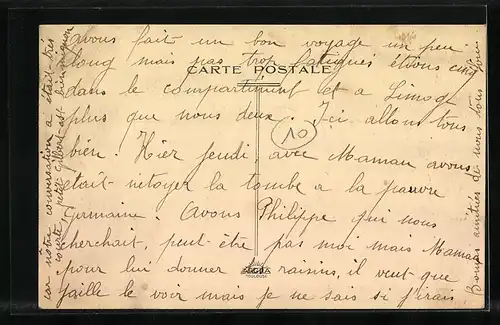 avons fait un bon voyage un peu
long mais pas trop fatigués étions cinq
CARTE POSTALE
dans le compartiment et a Limoge
plus que nous deux. Ici allons tous
10
bien. Hier jeudi, avec Maman avons
était netoyer la tombe a la pauvre
Germaine. Avons Philippe qui nous
cherchait, peut-être pas moi mais Maman
pour lui donner des raisins, il veut que
faille le voir mais je ne sais si j'irais
TOULOUSE
car nôtre conversation a était très
courte, petit Gilbert est bien mignon
Bonnes amitiés de nous tous